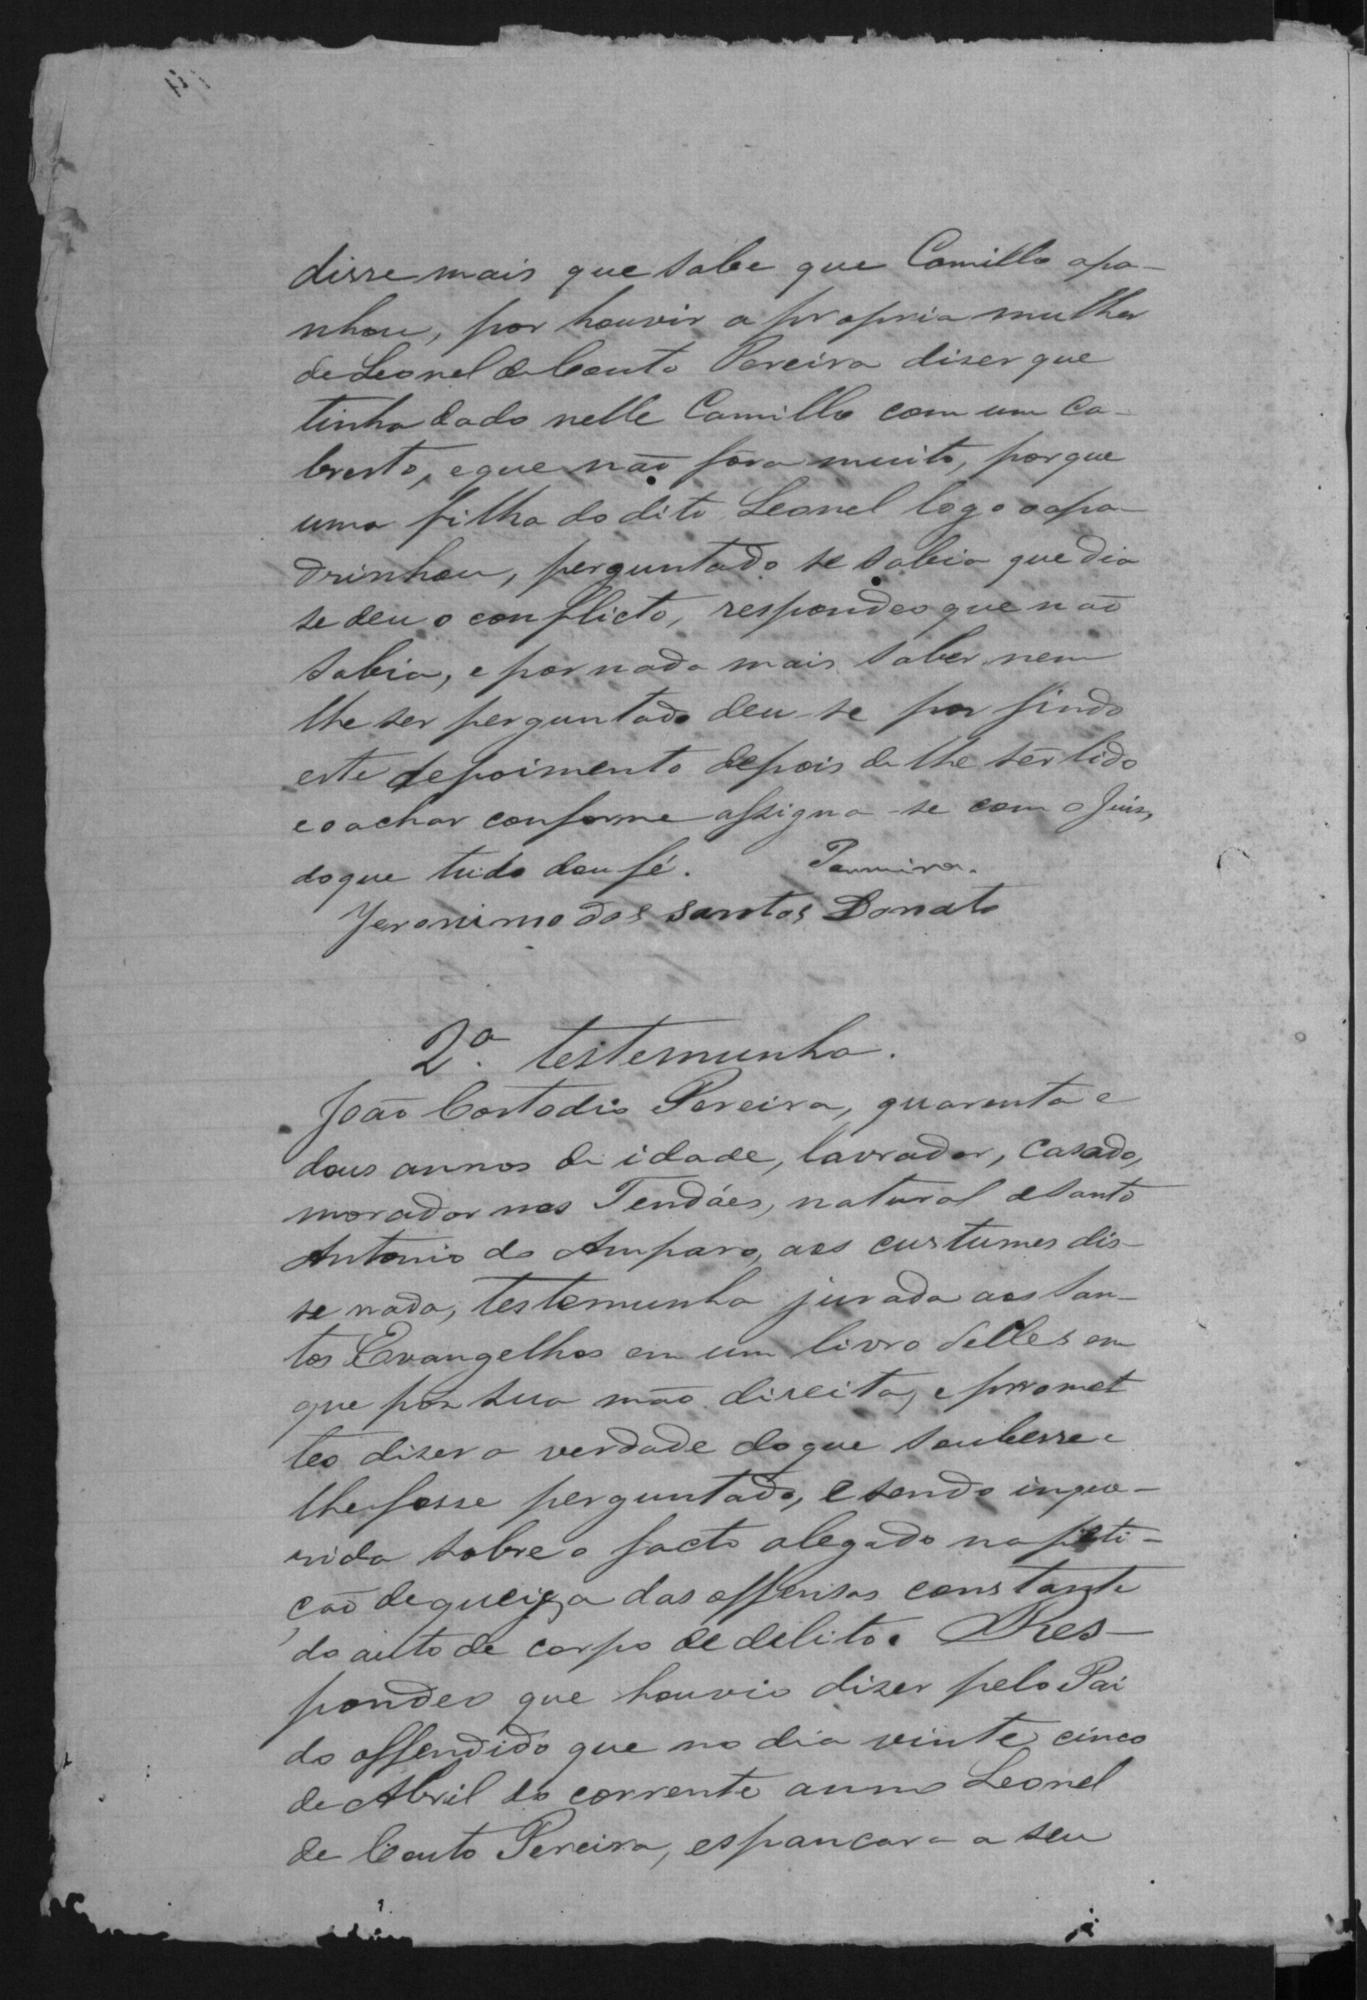 disse mais que sabe que Camillo apa-
nhou, por houvir a propria mulher
de Leonel do Couto Pereira diser que
tinha dado nelle Camillo com um ca-
bresto, e que não fora muito, porque
uma filha do dito Leonel logo o apa-
drinhou, perguntado se sabia que dia
se deu o conflicto, respondeo que não
sabia, e por nada mais saber nem
lhe ser perguntado deu-se por findo
este depoimento depois de lhe ser lido
e o achar conforme assigna-se com o Juis,
do que tudo dou fé.
Jeronimo dos Santos Donato
2ª. testemunha.
João Costodio Pereira, quarenta e
dous annos de idade, lavrador, casado,
morador nos Tendáes, natural de Santo
Antonio do Amparo, aos custumes dis-
se nada, testemunha jurada aos San-
tos Evangelhos em um livro delles em
que pos sua mão direita, e promet
teo diser a verdade do que soubesse e
lhe fosse perguntado, e sendo inque-
rida sobre o facto alegado na peti-
ção de queixa das offensas constante
do auto de corpo de delito. Res-
pondeo que houvio diser pelo Pai
do offendido que no dia vinte cinco
de Abril do corrente anno Leonel
de Couto Pereira, espancara a seu